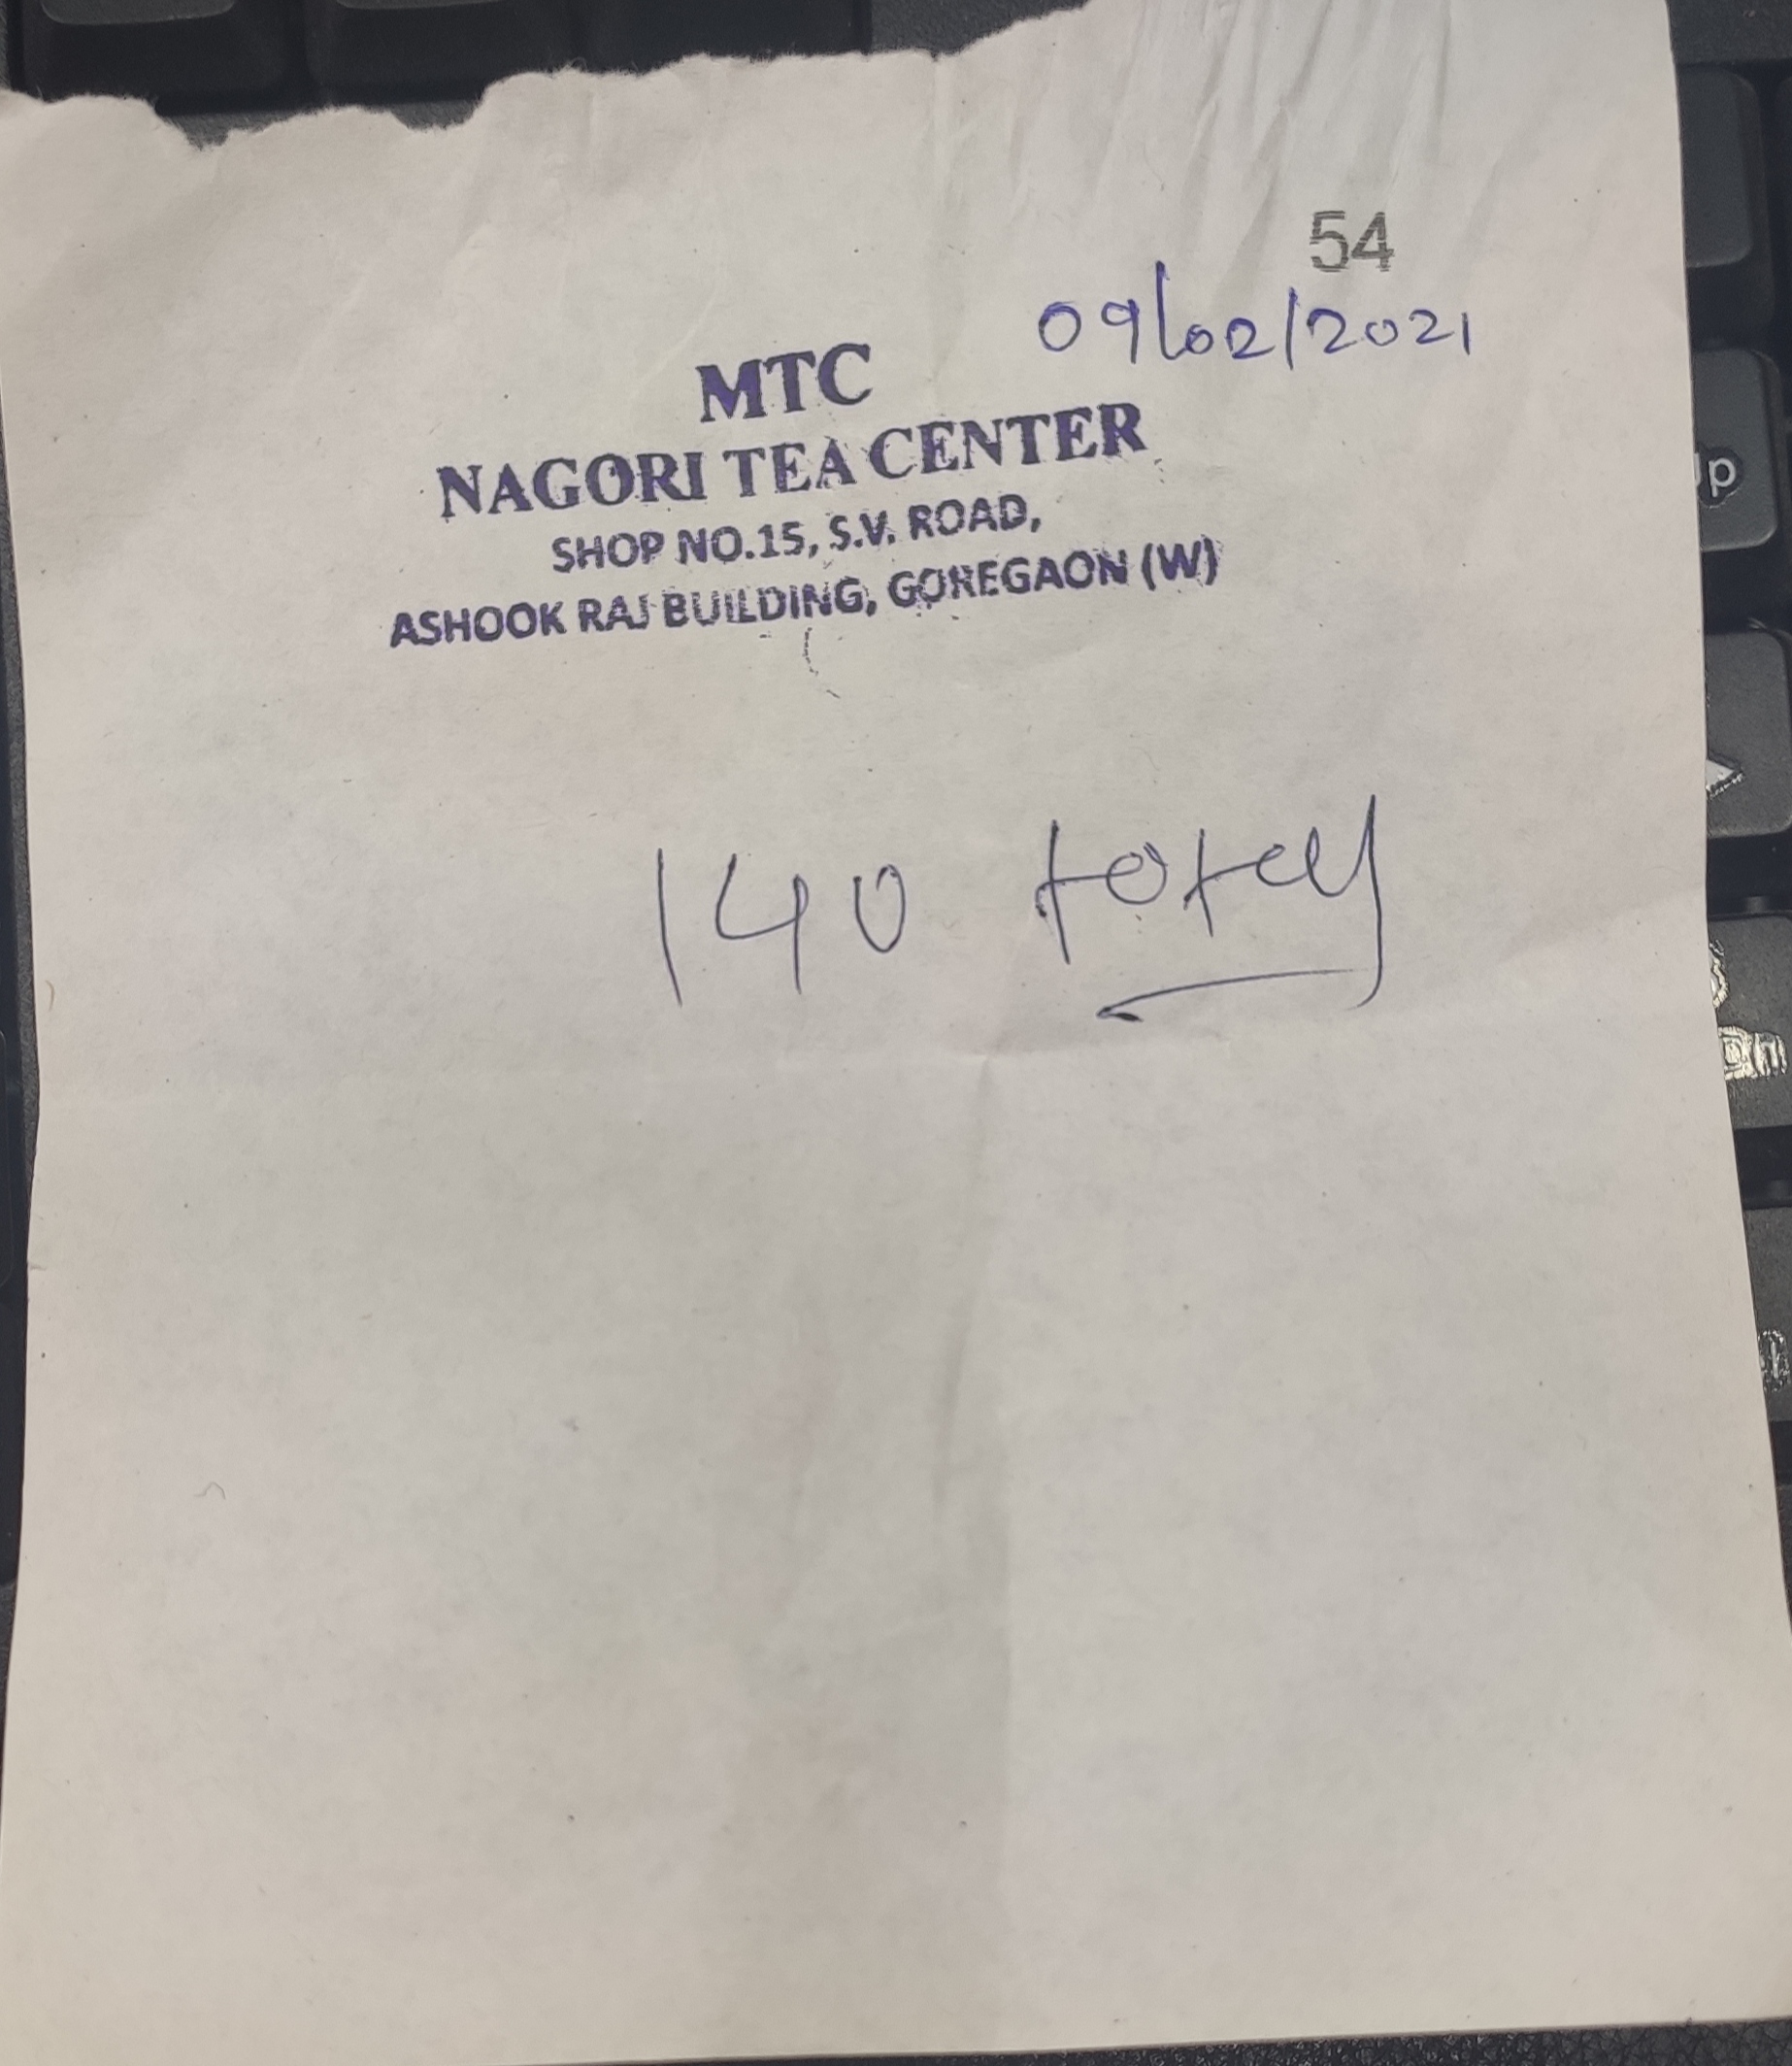 54
09/02/2021
MTC
NAGORI TEA CENTER
SHOP NO.15, S.V. ROAD,
ASHOOK RAJ BUILDING, GOREGAON (W)
140 total